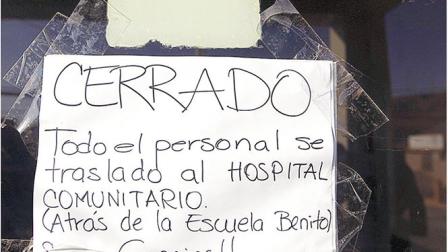 CERRADO
Todo el personal se
traslado al HOSPITAL
COMUNITARIO.
(Atrás de la Escuela Benito)